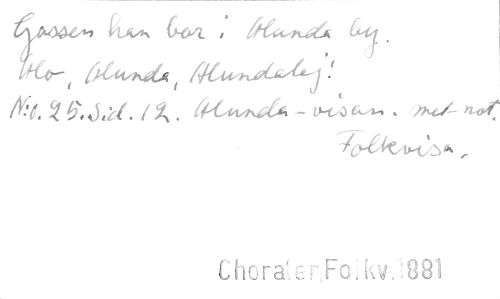 Gossen han bor i Alunda by.
Alo, Alunda, Alundalej!
N:o. 25. Sid. 12. Alunda-visan. met not.
Folkvisa.
Choraler, Folkv. 1881